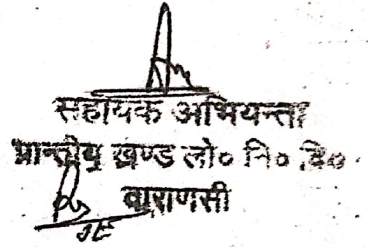 सहायक अभियन्ता
प्रान्तीय खण्ड लो० नि० वि०
वाराणसी